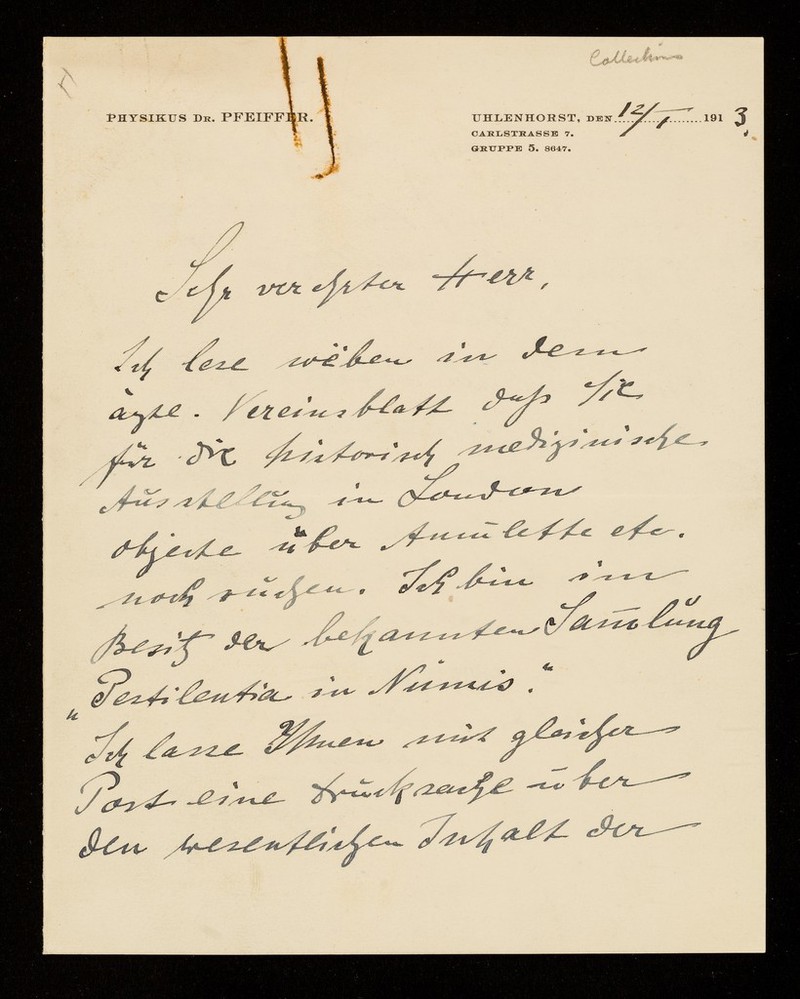 Collections
PHYSIKUS DR. PFEIFFER.
UHLENHORST, DEN 12/I 1913.
CARLSTRASSE 7.
GRUPPE 5. 8647.
Sehr verehrter Herr,
Ich lese soeben in dem
ärztl. Vereinsblatt daß Sie
für die historisch medizinische
Ausstellung in London
objecte über Amulette etc.
noch suchen. Ich bin im
Besitz der bekannten Sam̅lung
„Pestilentia in Numis."
Ich lasse Ihnen mit gleicher
Post eine Drucksache über
den wesentlichen Inhalt der